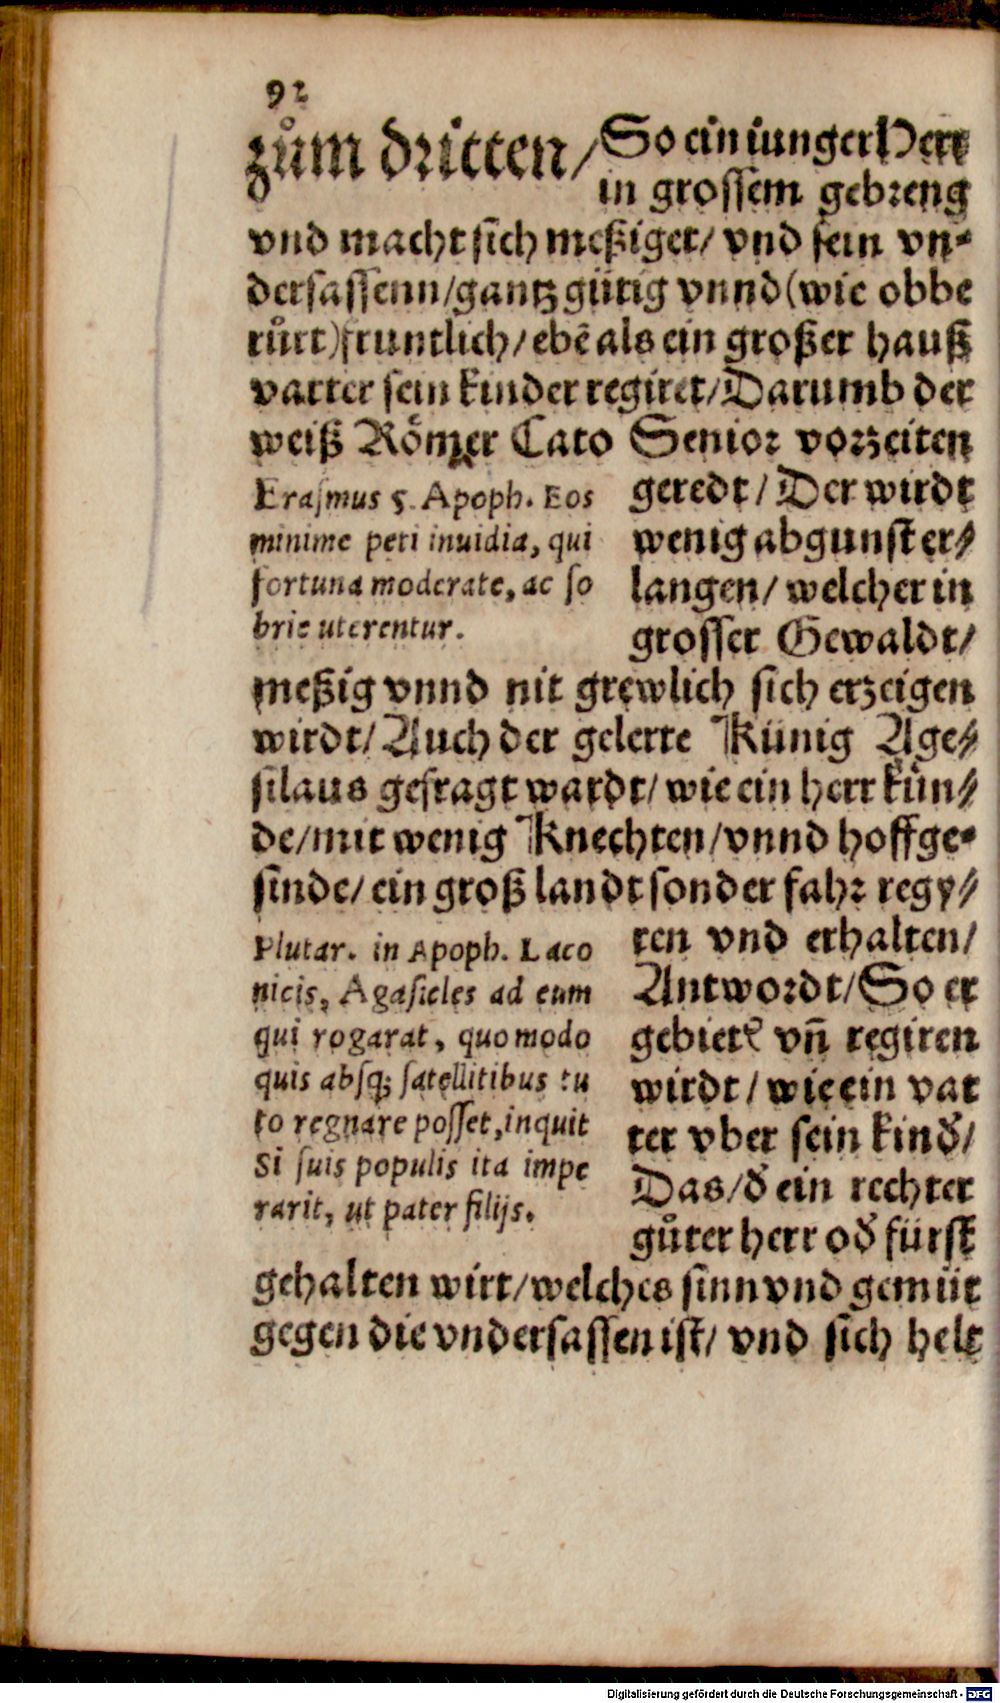 92
zům dritten/ So ein iunger Herr
in grossem gebreng
vnd macht sich meßiget/ vnd sein vn-
dersassenn/gantz gütig vnnd (wie obbe
růrt) fruntlich/ ebē als ein großer hauß
vatter sein kinder regiret/ Darumb der
weiß Römer Cato Senior vorzeiten
geredt/ Der wirdt
wenig abgunst er/
langen/ welcher in
grosser Gewaldt/
Erasmus 5. Apoph. Eos
minime peti inuidia, qui
fortuna moderate, ac so
brie uterentur.
meßig vnnd nit grewlich sich erzeigen
wirdt/ Auch der gelerte Künig Age/
silaus gefragt wardt/ wie ein herr kün/
de/ mit wenig Knechten/ vnnd hoffge-
sinde/ ein groß landt sonder fahr regy/
ren vnd erhalten/
Antwordt/ So er
gebietꝭ vn̄ regiren
wirdt/ wie ein vat
ter vber sein kind̛/
Das/ d̛ ein rechter
gůter herr od̛ fürst
Plutar. in Apoph. Laco
nicis, Agasicles ad eum
qui rogarat, quomodo
quis absq; satellitibus tu
to regnare posset, inquit
Si suis populis ita impe
rarit, ut pater filijs.
gehalten wirt/ welches sinn vnd gemüt
gegen die vndersassen ist/ vnd sich helt
Digitalisierung gefördert durch die Deutsche Forschungsgemeinschaft - DFG